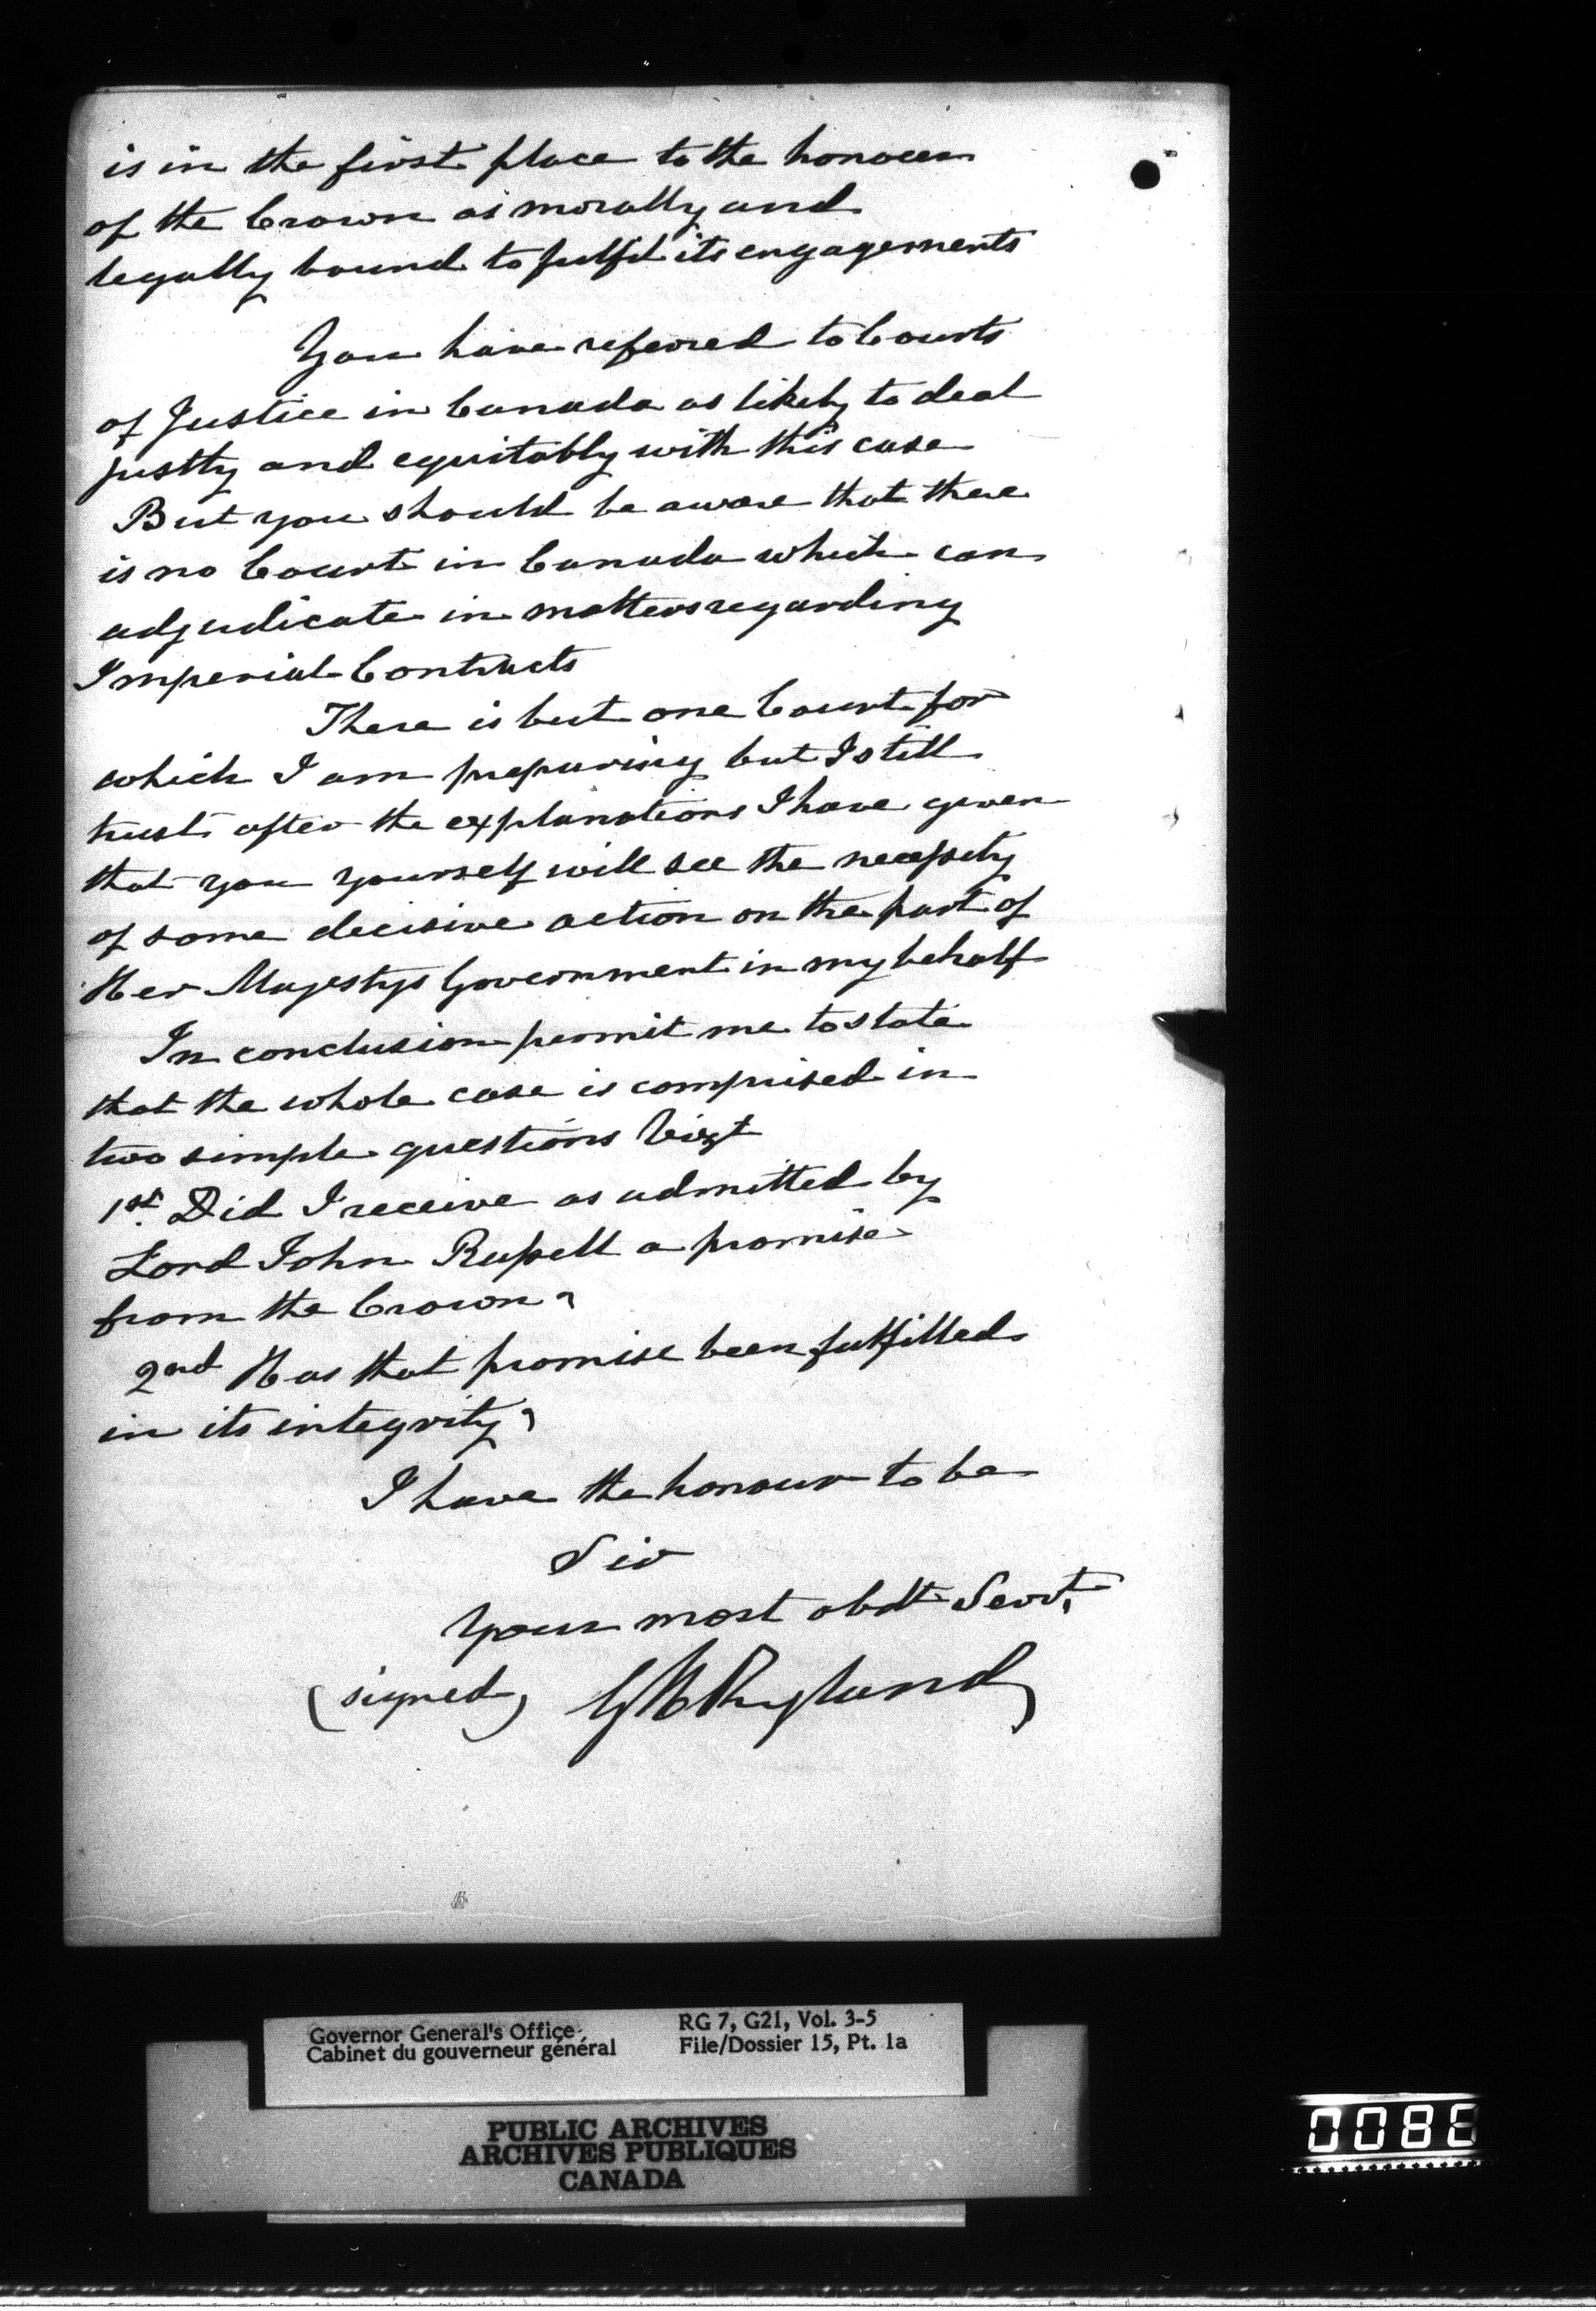 is in the first place to the honour
of the Crown as morally and
legally bound to fulfil its engagements
You have referred to Courts
of Justice in Canada as likely to deal
justly and equitably with this case
But you should be aware that there
is no Court in Canada which can
adjudicate in matters regarding
Imperial Contracts
There is but one Court for
which I am preparing but I still
trust after the explanations I have given
that you yourself will see the necessity
of some decisive action on the part of
Her Majestys Government in my behalf
In conclusion permit me to state
that the whole case is comprised in
two simple questions Vizt
1st. Did I receive as admitted by
Lord John Russell a promise
from the Crown?
2nd Has that promise been fulfilled
in its integrity?
I have the honour to be
Sir
Your most obdt Servt.
(signed) G H Ryland
Governor General's Office RG 7, G21, Vol. 3-5
Cabinet du gouverneur général File/Dossier 15, Pt. 1a
PUBLIC ARCHIVES
ARCHIVES PUBLIQUES
CANADA